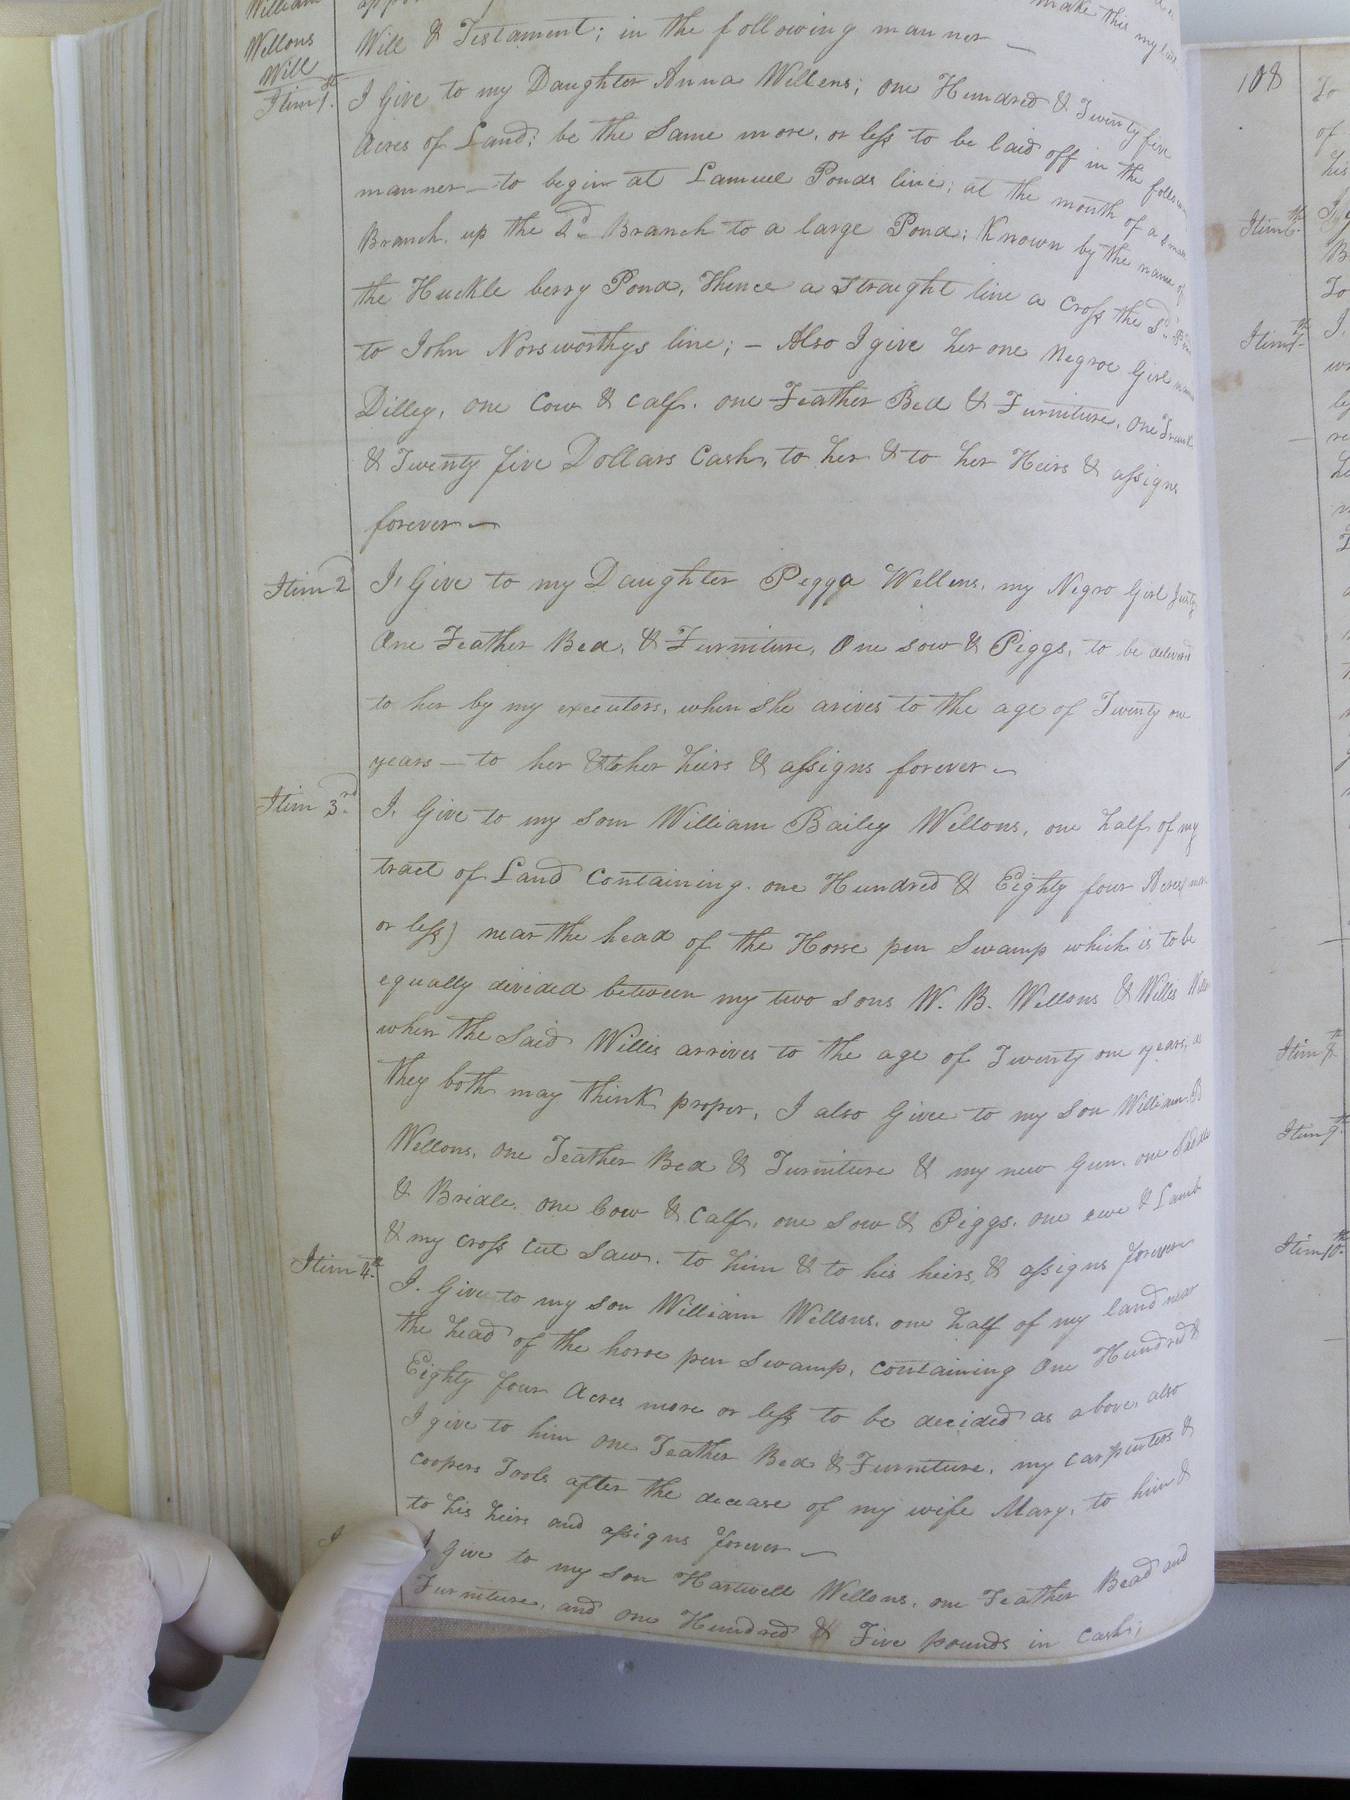 William
Wellons
Will
make this my last
Will & Testament; in the following manner —
Itim 1st
I Give to my Daughter Anna Wellens; one Hundred & Twenty five
Acres of Land; be the Same more, or less to be laid off in the
manner — to begin at Lamuel Ponds line; at the mouth of a
Branch, up the Sd Branch to a large Pond; Known by the name of
the Huckle berry Pond, Thence a straight line a Cross the Sd
to John Norsworthys line; — Also I give her one Negroe Girl
Dilley, one Cow & calf. one Feather Bed & Furniture, one Trunk
& Twenty five Dollars Cash, to her & to her Heirs & assigns
forever —
Itim 2
I, Give to my Daughter Pegga Wellens, my Negro Girl
One Feather Bed, & Furniture, One sow & Piggs, to be delivered
to her by my executors, when she arives to the age of Twenty one
years — to her & to her heirs & assigns forever —
Itim 3rd
I, Give to my Son William Bailey Wellons, one half of my
tract of Land Containing one Hundred & Eighty four Acres
or less) near the head of the Horse pen Swamp which is to be
equally divided between my two sons W. B. Wellons & Willis
when the Said Willis arrives to the age of Twenty one years, as
they both may think proper, I also Givee to my Son William B
Wellons, one Feather Bed & Furniture & my new Gun, one Saddle
& Bridle, one Cow & Calf, one Sow & Piggs, one ewe & Lamb
& my cross cut Saw, to him & to his heirs & assigns forever
Itim 4th
I. Give to my son William Wellons, one half of my land near
the head of the horse pen Swamp, containing One Hundred &
Eighty four Acres more or less to be decided as above, also
I give to him one Feather Bed & Furniture, my carpenters &
coopers Tools after the decease of my wife Mary, to him &
to his heirs and assigns forever —
I Give to my Son Hartwell Wellons, one Feather Bead and
Furniture, and one Hundred & Five pounds in Cash;
108
To
of
his
Itim 6th
Itim 7th
Itim 8th
Itim 9th
Itim 10th